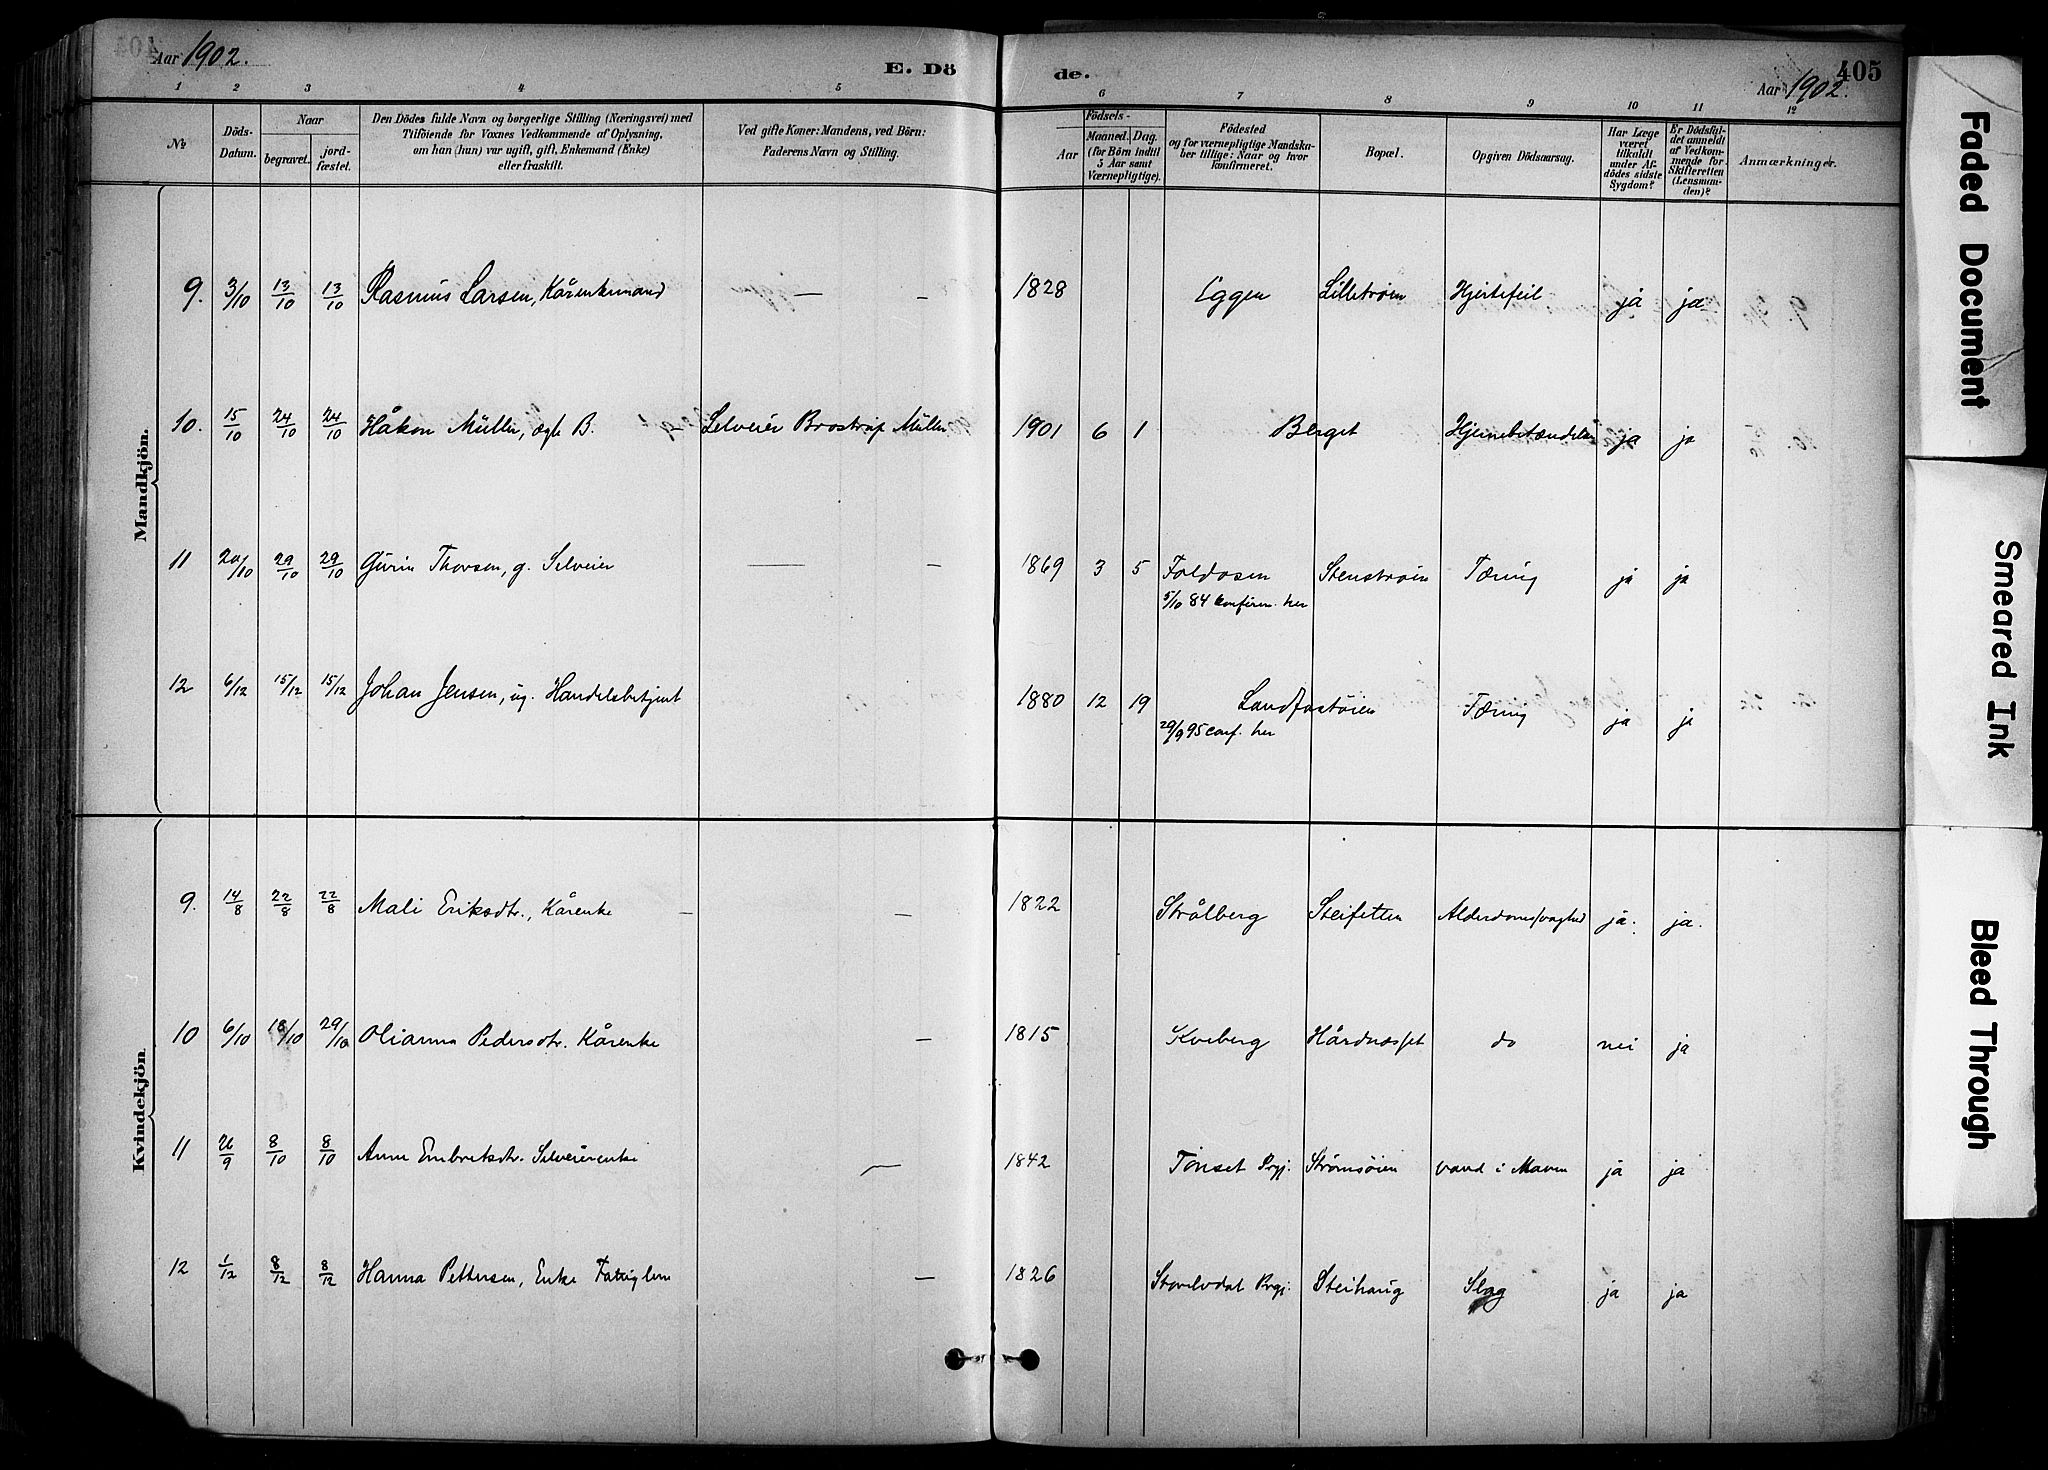 Aar 1902.
E. Döde.
Aar 1902.
405
1 2 3 4 5 6 7 8 9 10 11 12
№
Döds-Datum.
Naar
begravet.
jord-fæstet.
Den Dödes fulde Navn og borgerlige Stilling (Næringsvei) med
Tilföiende for Voxnes Vedkommende af Oplysning,
om han (hun) var ugift, gift, Enkemand (Enke)
eller fraskilt.
Ved gifte Koner: Mandens, ved Börn:
Faderens Navn og Stilling.
Födsels-
Aar
Maaned. Dag.
(for Börn indtil
5 Aar samt
Værnepligtige).
Födested
og for værnepligtige Mandska-
ber tillige: Naar og hvor
konfirmeret.
Bopæl.
Opgiven Dödsaarsag.
Har Læge
været
tilkaldt
under Af-
dödes sidste
Sygdom?
Er Dödsfal-
det anmeldt
af Vedkom-
mende for
Skifteretten
(Lensman-
den)?
Anmærkninger.
Mandkjön.
9. 3/10 13/10 13/10 Rasmus Larsen, Kårenkemand — — 1828 Eggen Lillestrøen Hjertefeil ja ja
10. 15/10 24/10 24/10 Håkon Müller, ægte B. Selveier Brostrup Müller 1901 6 1 Berget Hjernebetændelse ja ja
11 20/10 29/10 29/10 Thorsen, g. Selveier — — 1869 3 5 Foldosen Stenstrøen Tæring ja ja
5/10 84 confirm. her
12 6/12 15/12 15/12 Johan Jensen, ug. Handelsbetjent 1880 12 19 Landfastøien Tæring ja ja
29/9 95 conf. her
Kvindekjön.
9. 14/8 22/8 22/8 Mali Eriksdtr., Kårenke — — 1822 Strålberg Steifetten Alderdomssvaghed ja. ja.
10 6/10 18/10 29/10 Olianna Pedersdtr. Kårenke — 1815 Kveberg Hårdnæsset do nei ja
11 26/9 8/10 8/10 Anne Embretsdtr. Selveierenke — 1842 Tønset Prgj. Strømsøien vand i Maven ja ja
12 1/12 8/12 8/12 Hanna Pettersen, Enke Fattiglem — 1826 Storelvdal Prgj. Steihaug Slag ja ja
Faded Document
Smeared Ink
Bleed Through